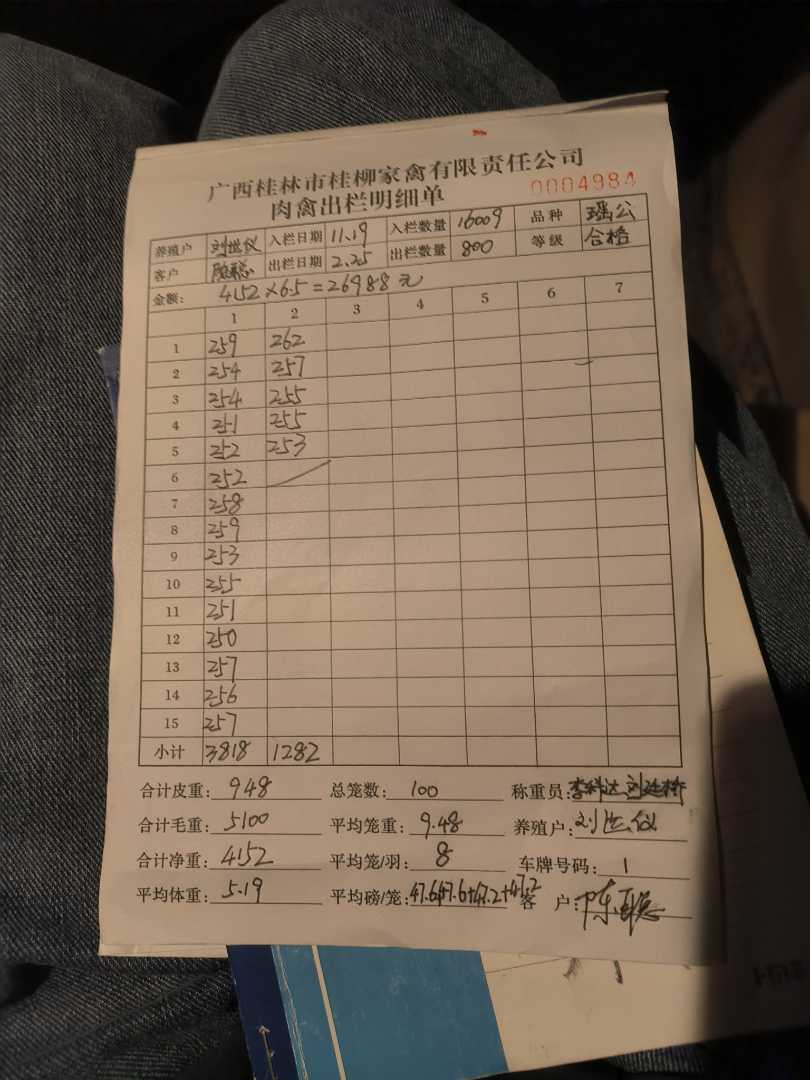 广西桂林市桂柳家禽有限责任公司
肉禽出栏明细单 0004984
养殖户 刘世仪 入栏日期 11.19 入栏数量 16009 品种 瑶公
客户 陈聪 出栏日期 2.25 出栏数量 800 等级 合格
金额: 4152×6.5=26988元
1 2 3 4 5 6 7
1 259 262
2 254 257
3 254 255
4 251 255
5 252 253
6 252
7 258
8 259
9 253
10 255
11 251
12 250
13 257
14 256
15 257
小计 3818 1282
合计皮重: 948 总笼数: 100 称重员: 李科达 刘廷桥
合计毛重: 5100 平均笼重: 9.48 养殖户: 刘世仪
合计净重: 4152 平均笼/羽: 8 车牌号码: 1
平均体重: 5.19 平均磅/笼: 47.6+47.6+47.2+47.2 客户: 陈聪